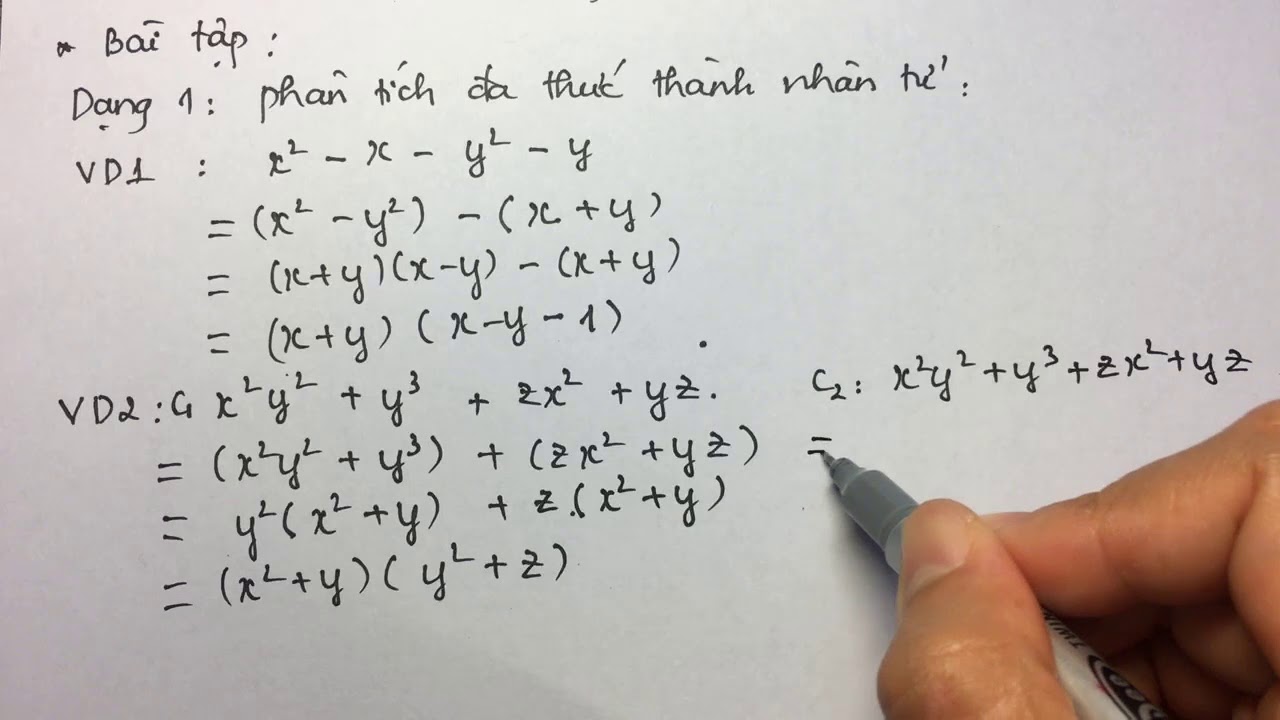 * Bài tập :
Dạng 1 : phân tích đa thức thành nhân tử :
VD1 : x² - x - y² - y
= (x² - y²) - (x + y)
= (x+y)(x-y) - (x+y)
= (x+y) (x-y-1)
VD2 : C₁ x²y² + y³ + zx² + yz.
= (x²y² + y³) + (zx² + yz)
= y²(x²+y) + z.(x²+y)
= (x²+y)(y²+z)
C₂ : x²y² + y³ + zx² + yz
=